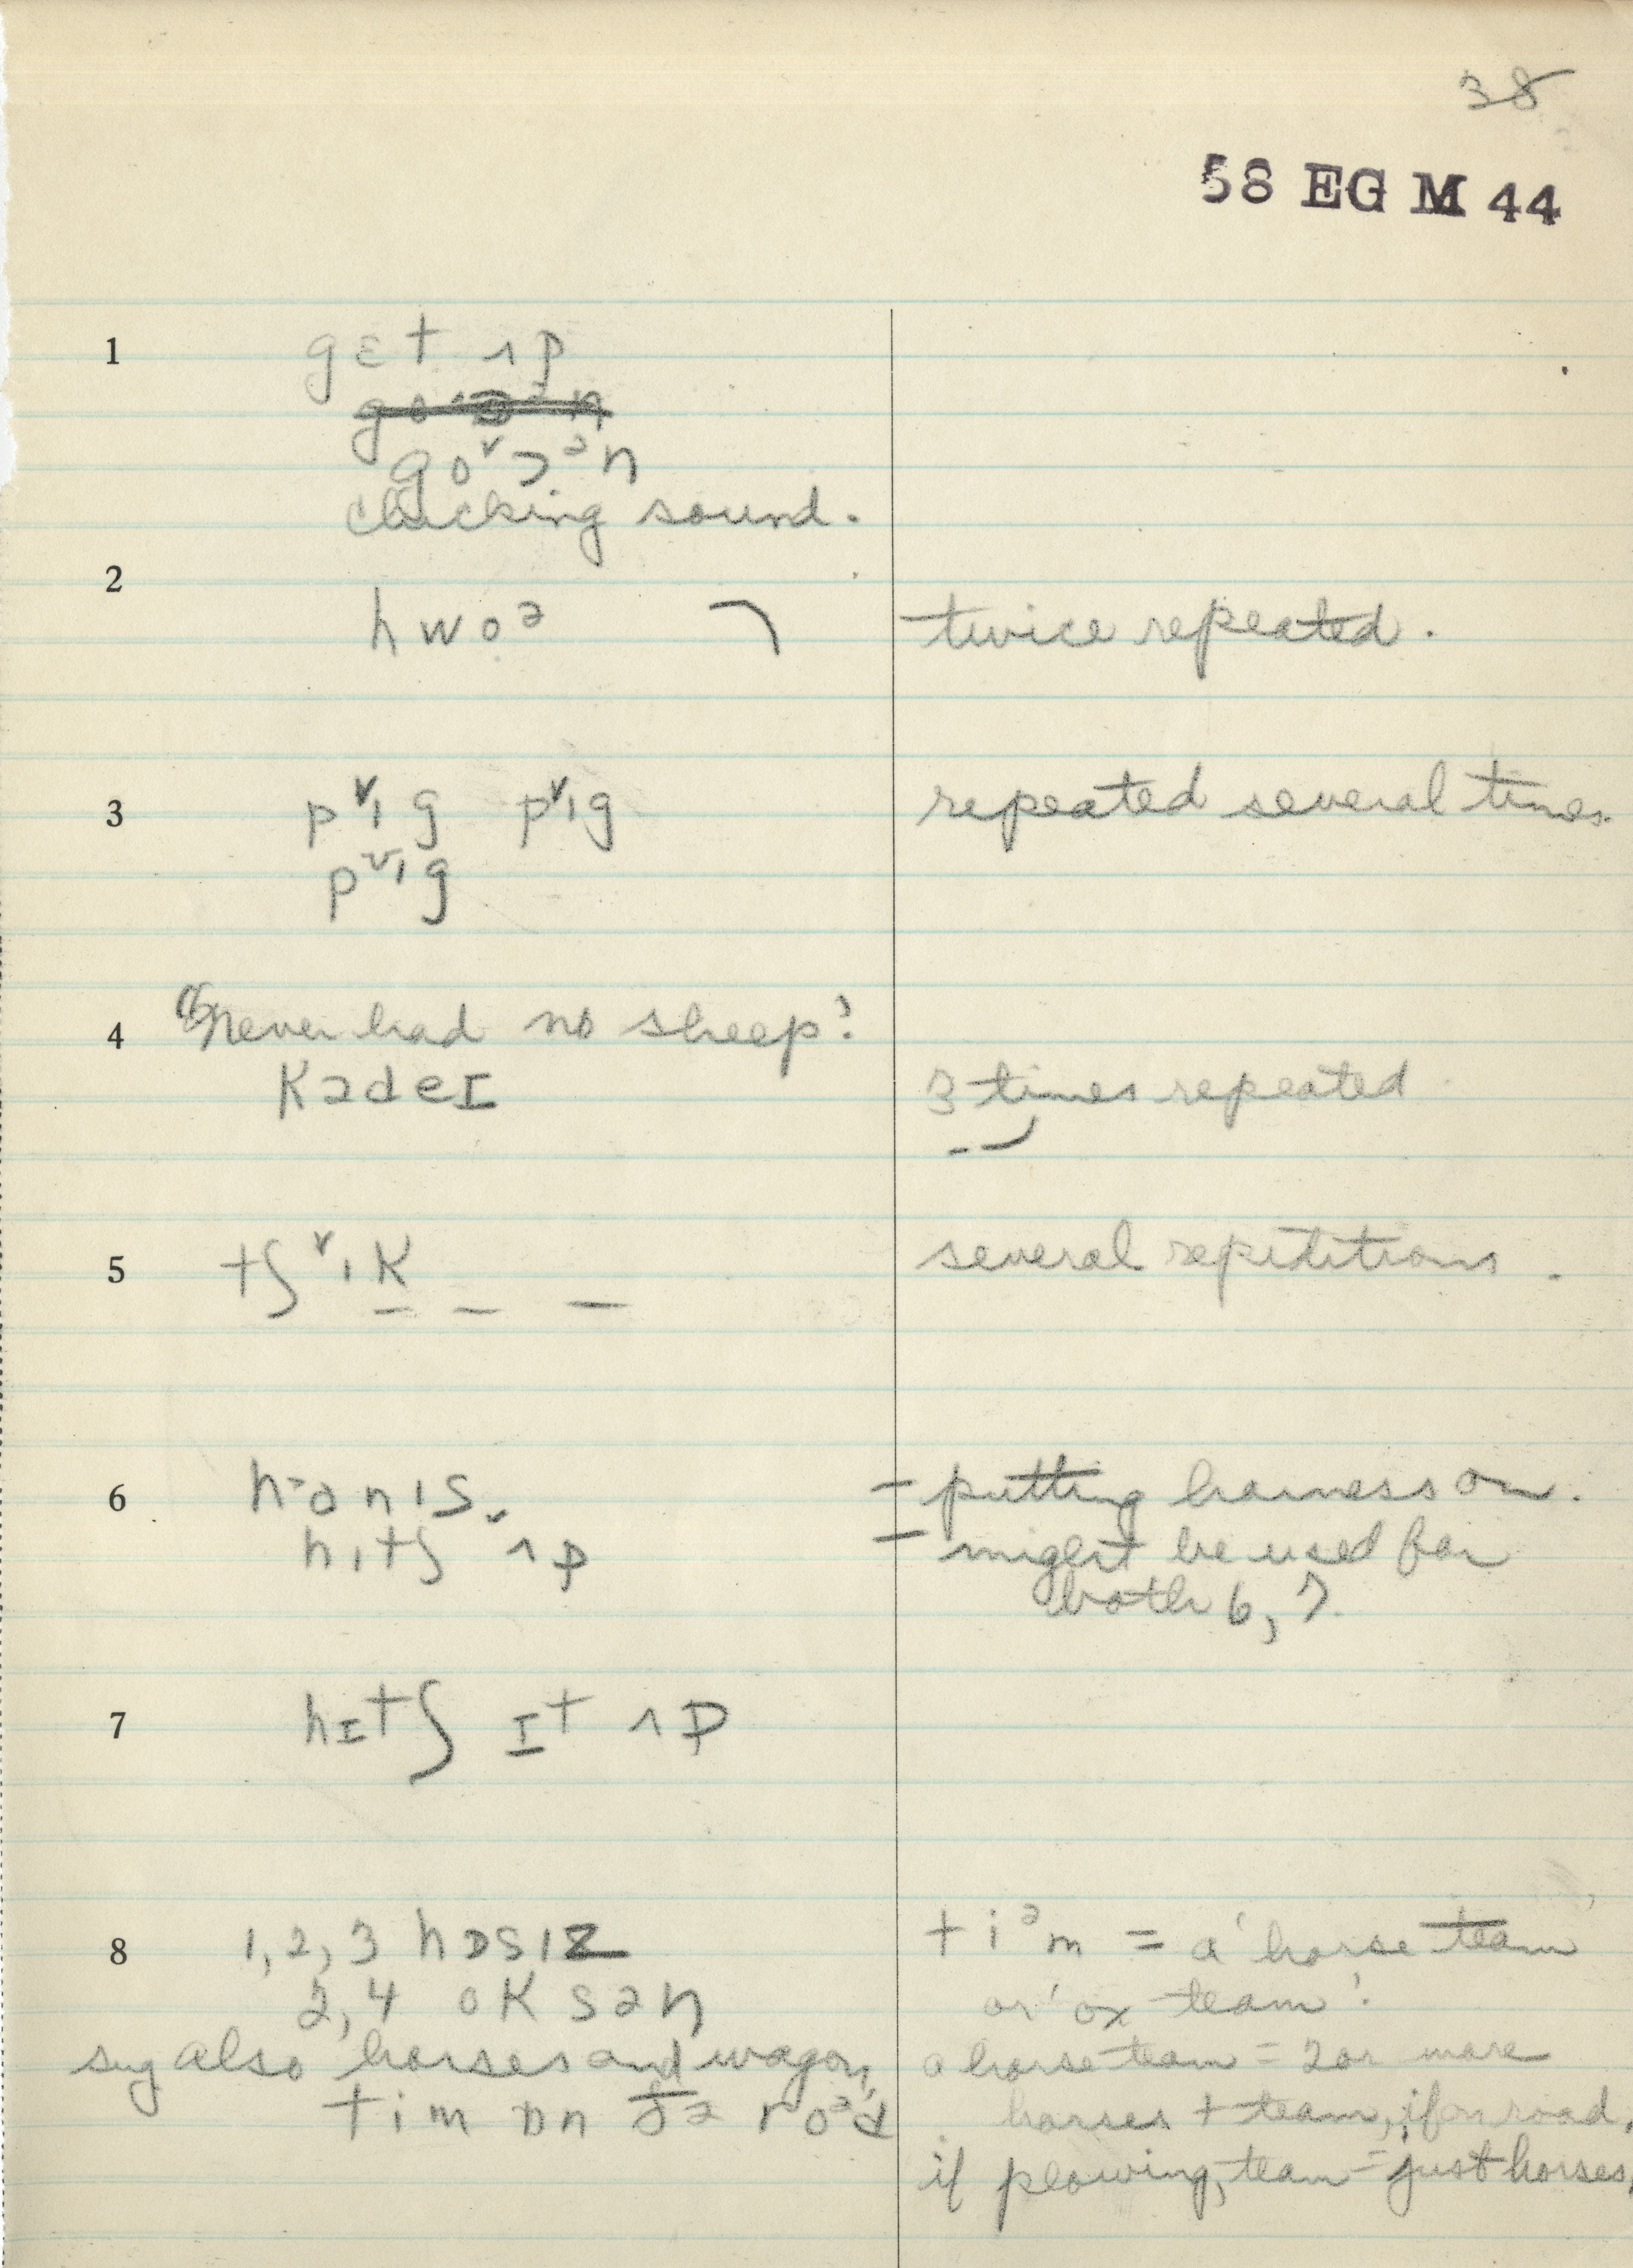 38
58 EG M 44
1 gɛt ʌp
go˅ɔᵊn
clucking sound.
2
hwoᵊ twice repeated.
3 p˅ıg p˅ıg repeated several times.
p˅ıg
4 "Never had no sheep"
kədeɪ 3 times repeated
5 tʃ˅ık _ _ _ several repititions.
6 hɑnıs – putting harness on.
hıtʃ ʌp – might be used for
both 6, 7.
7 hɪtʃ ɪt ʌp
8 1, 2, 3 hɒsız tiᵊm = a 'horse team'
2, 4 oksən or 'ox team'.
sug also horses and wagon, a horse team = 2 or more
tim ɒn ðə roᵊd horses + team, if on road,
if plowing, team = just horses,